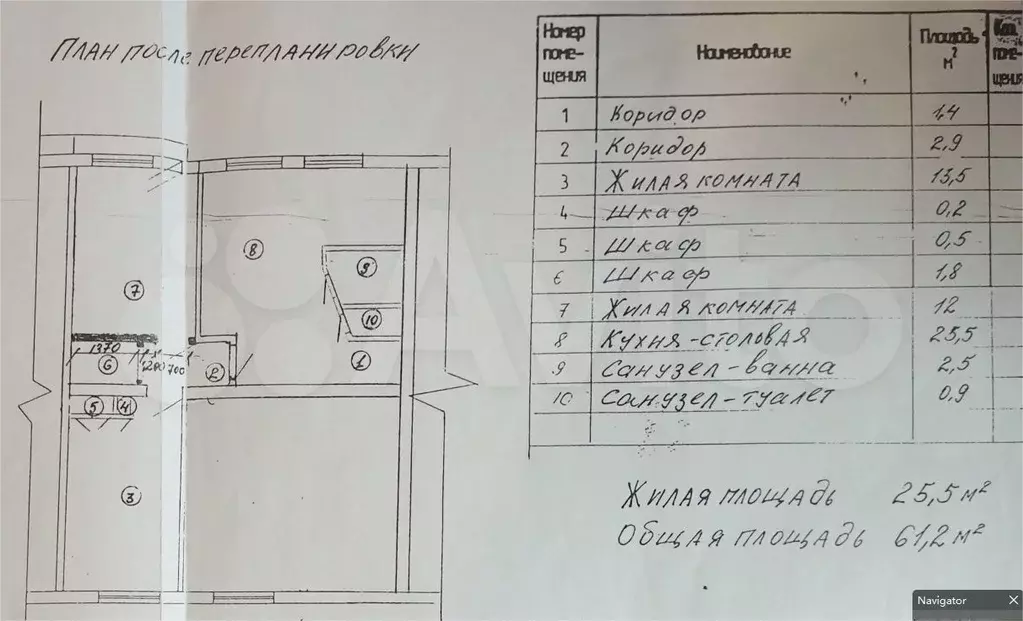 План после перепланировки
Номер помещения Наименование Площадь м² Кол. помещения
1 Коридор 1,4
2 Коридор 2,9
3 Жилая комната 13,5
4 Шкаф 0,2
5 Шкаф 0,5
6 Шкаф 1,8
7 Жилая комната 12
8 Кухня-столовая 25,5
9 Санузел-ванна 2,5
10 Санузел-туалет 0,9
Жилая площадь 25,5 м²
Общая площадь 61,2 м²
8
9
7
10
1370
1200 700
6
2
1
5 4
3
Avito
Navigator